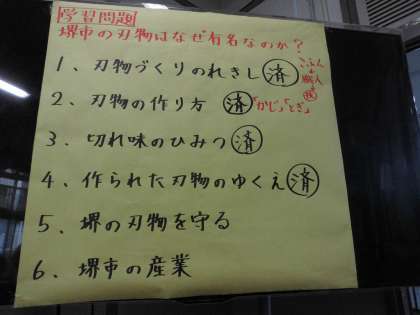 学習問題
堺市の刃物はなぜ有名なのか？
1、刃物づくりのれきし 済
こふん
職人
技
2、刃物の作り方 済 「かじ」「とぎ」
3、切れ味のひみつ 済
4、作られた刃物のゆくえ 済
5、堺の刃物を守る
6、堺市の産業